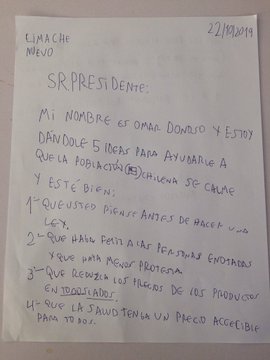 22/10/2019
LIMACHE
NUEVO
SR. PRESIDENTE:
MI NOMBRE ES OMAR DONOSO Y ESTOY
DÁNDOLE 5 IDEAS PARA AYUDARLE A
QUE LA POBLACIÓN CHILENA SE CALME
Y ESTÉ BIEN:
1- QUE USTED PIENSE ANTES DE HACER UNA
LEY.
2- QUE HAGA FELIZ A LAS PERSONAS ENOJADAS
Y QUE HAYA MENOS PROTESTA.
3- QUE REDUZCA LOS PRECIOS DE LOS PRODUCTOS
EN TODOS LADOS.
4- QUE LA SALUD TENGA UN PRECIO ACCESIBLE
PARA TODOS.